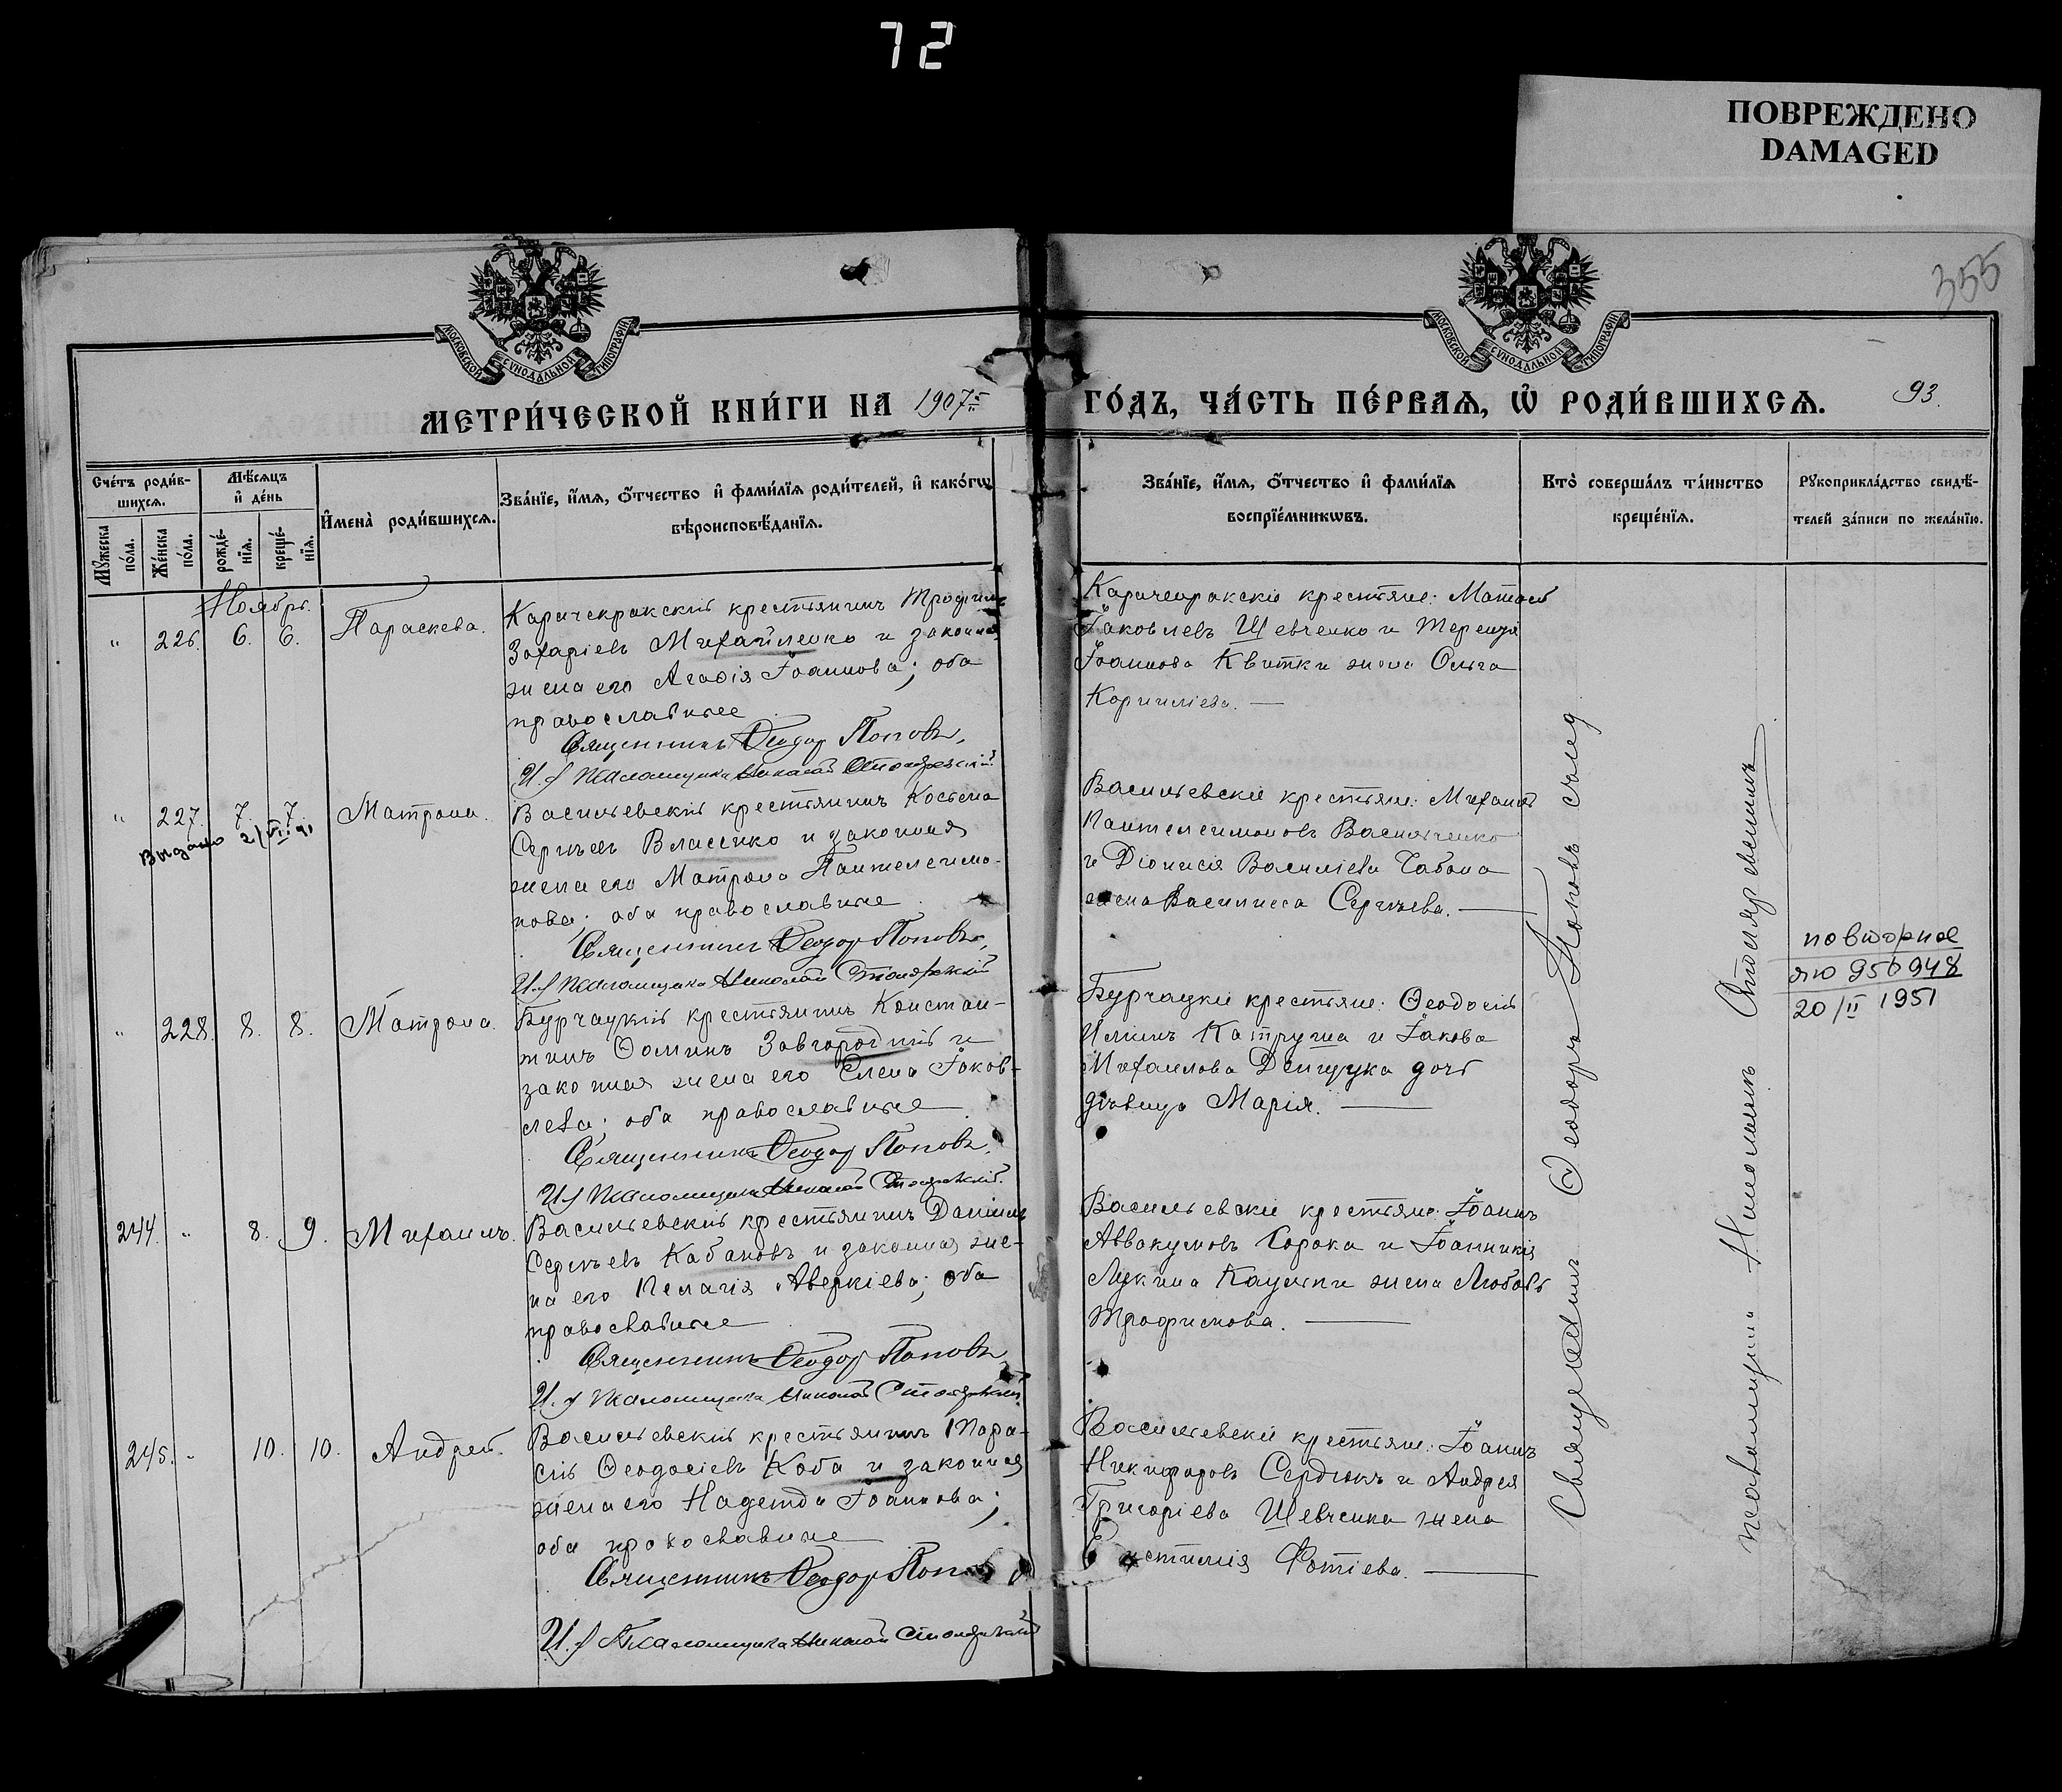 72
ПОВРЕЖДЕНО
DAMAGED
355
МОСКОВСКОЙ СѴНОДАЛЬНОЙ ТИПОГРАФІИ
МОСКОВСКОЙ СѴНОДАЛЬНОЙ ТИПОГРАФІИ
МЕТРИ́ЧЕСКОЙ КНИ́ГИ НА 1907й
ГО́ДЪ, ЧА́СТЬ ПЕ́РВАЯ, Ѡ҆ РОДИ́ВШИХСЯ. 93.
Счетъ роди́в-
шихся.
Мѣсяцъ
и҆ де́нь
И҆мена̀ роди́вшихся.
Зва́нїе, и҆́мя, ѻ҆́тчество и҆ фами́лїя роди́телей, и҆ како́гѡ
вѣроисповѣ́данїя.
Мꙋ́жеска
по́ла.
Же́нска
по́ла.
рожде́-
нїя.
креще́-
нїя.
Зва́нїе, и҆́мя, ѻ҆́тчество и҆ фами́лїя
воспрїе́мникѡвъ.
Кто̀ соверша́лъ та́инство
креще́нїя.
Рꙋкоприкла́дство свидѣ́-
телей за́писи по жела́нїю.
Ноябрь.
" 226. 6. 6. Параскева.
Карачекракскій крестьянинъ Трофимъ
Захаріевъ Михайленко и законная
жена его Агафія Іоаннова; оба
православные
Священникъ Ѳеодоръ Поповъ.
И. д. псаломщика Николай Столяревскій
Карачекракскіе крестьяне: Матѳей
Іаковлевъ Шевченко и Терентія
Іоаннова Квитки жена Ольга
Корниліева. —
" 227. 7. 7. Матрона.
Выдано 2/VI 41
Васильевскій крестьянинъ Косьма
Сергѣевъ Власенко и законная
жена его Матрона Пантелеимо-
нова; оба православные
Священникъ Ѳеодоръ Поповъ.
И. д. псаломщика Николай Столяревскій
Васильевскіе крестьяне: Михаилъ
Пантелеимоновъ Васильченко
и Діонисія Василіева Чабана
жена Василисса Сергѣева. —
" 228. 8. 8. Матрона.
Бурчацкій крестьянинъ Констан-
тинъ Ѳоминъ Завгородній и
законная жена его Елена Іаков-
лева; оба православные
Священникъ Ѳеодоръ Поповъ.
И. д. псаломщика Николай Столяревскій.
Бурчацкіе крестьяне: Ѳеодосій
Илiинъ Катруша и Іакова
Михаилова дочь
дѣвица Марія. —
повторное
яю 950948
20/II 1951
244. " 8. 9. Михаилъ.
Васильевскій крестьянинъ Даніилъ
Сергѣевъ Кабановъ и законная же-
на его Пелагія Аверкіева; оба
православные
Священникъ Ѳеодоръ Поповъ
И. д. псаломщика Николай Столяревскій
Васильевскіе крестьяне: Іоаннъ
Аввакумовъ Сорока и Іоанникія
Лукина жена Любовь
Трофимова. —
245. " 10. 10. Андрей.
Васильевскій крестьянинъ Тара-
сій Ѳеодосіевъ Коба и законная
жена его Надежда Іоаннова;
оба православные
Священникъ Ѳеодоръ Поповъ
И. д. псаломщика Николай Столяревскій
Васильевскіе крестьяне: Іоаннъ
Никифоровъ Сердюкъ и Андрея
Григоріева Шевченка жена
Фотіева. —
Священникъ Ѳеодоръ Поповъ съ и. д.
псаломщика Николаемъ Столяревскимъ